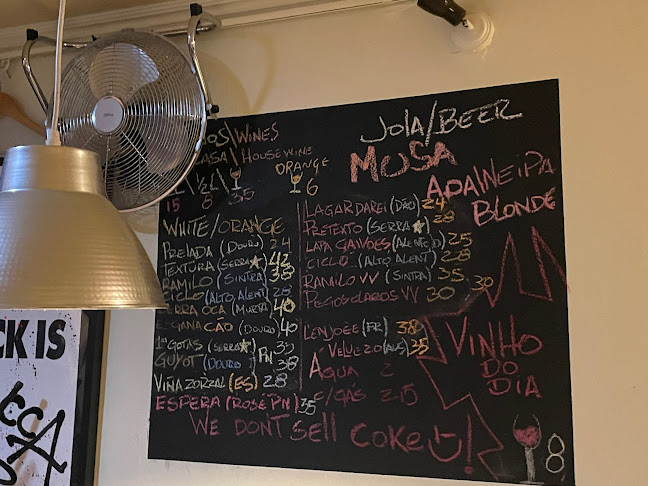 OS\WINES
CASA\HOUSE WINE
1L\½L\
15 8 3.5
ORANGE
6
WHITE/ORANGE
PRELADA (DOURO) 24
TEXTURA (SERRA★) 42
RAMILO (SINTRA) 38
CICLO (ALTO ALENT) 28
TERRA OCA (MURÇA) 40
(DOURO) 40
1as GOTAS (SERRA★) 39
GUYOT (DOURO) PN 38
VIÑA ZORZAL (ES) 28
ESPERA (ROSÉ PN) 35
JOIA/BEER
MUSA
APA\NEIPA
BLONDE
LAGAR DAREI (DÃO) 24
PRETEXTO (SERRA★) 28
LAPA GAIVOES (ALENTEJO) 25
CICLO (ALTO ALENT) 28
RAMILO VV (SINTRA) 35
PEGOS CLAROS VV 30
30
(FR) 38
(AUS) 35
ÁGUA 2
C/GÁS 2.15
VINHO
DO
DIA
8
WE DONT SELL COKE !
CK IS